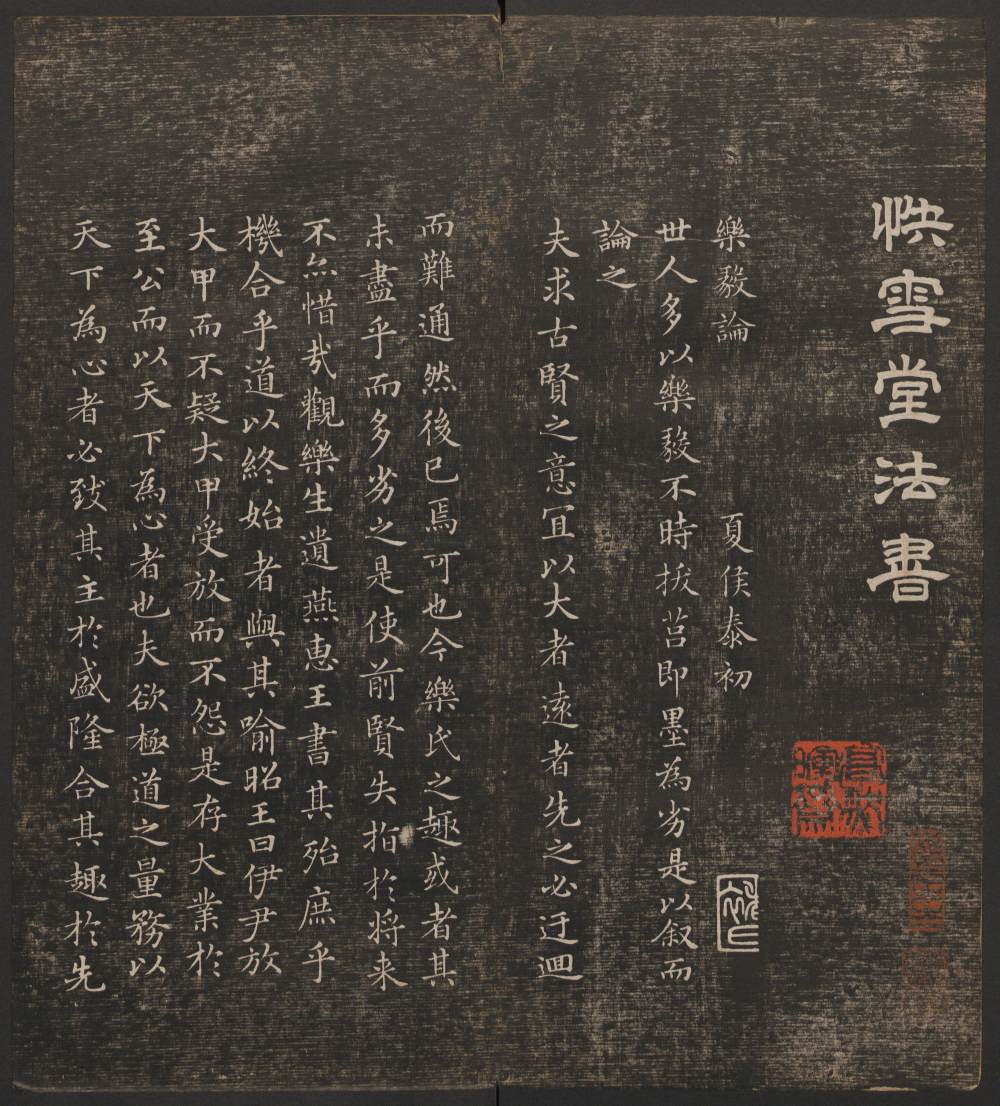 快雪堂法書
樂毅論　夏侯泰初
世人多以樂毅不時拔莒即墨為劣是以叙而
論之
夫求古賢之意宜以大者遠者先之必迂迴
而難通然後已焉可也今樂氏之趣或者其
未盡乎而多劣之是使前賢失指於将来
不亦惜哉觀樂生遺燕惠王書其殆庶乎
機合乎道以終始者與其喻昭王曰伊尹放
大甲而不疑大甲受放而不怨是存大業於
至公而以天下為心者也夫欲極道之量務以
天下為心者必致其主於盛隆合其趣於先